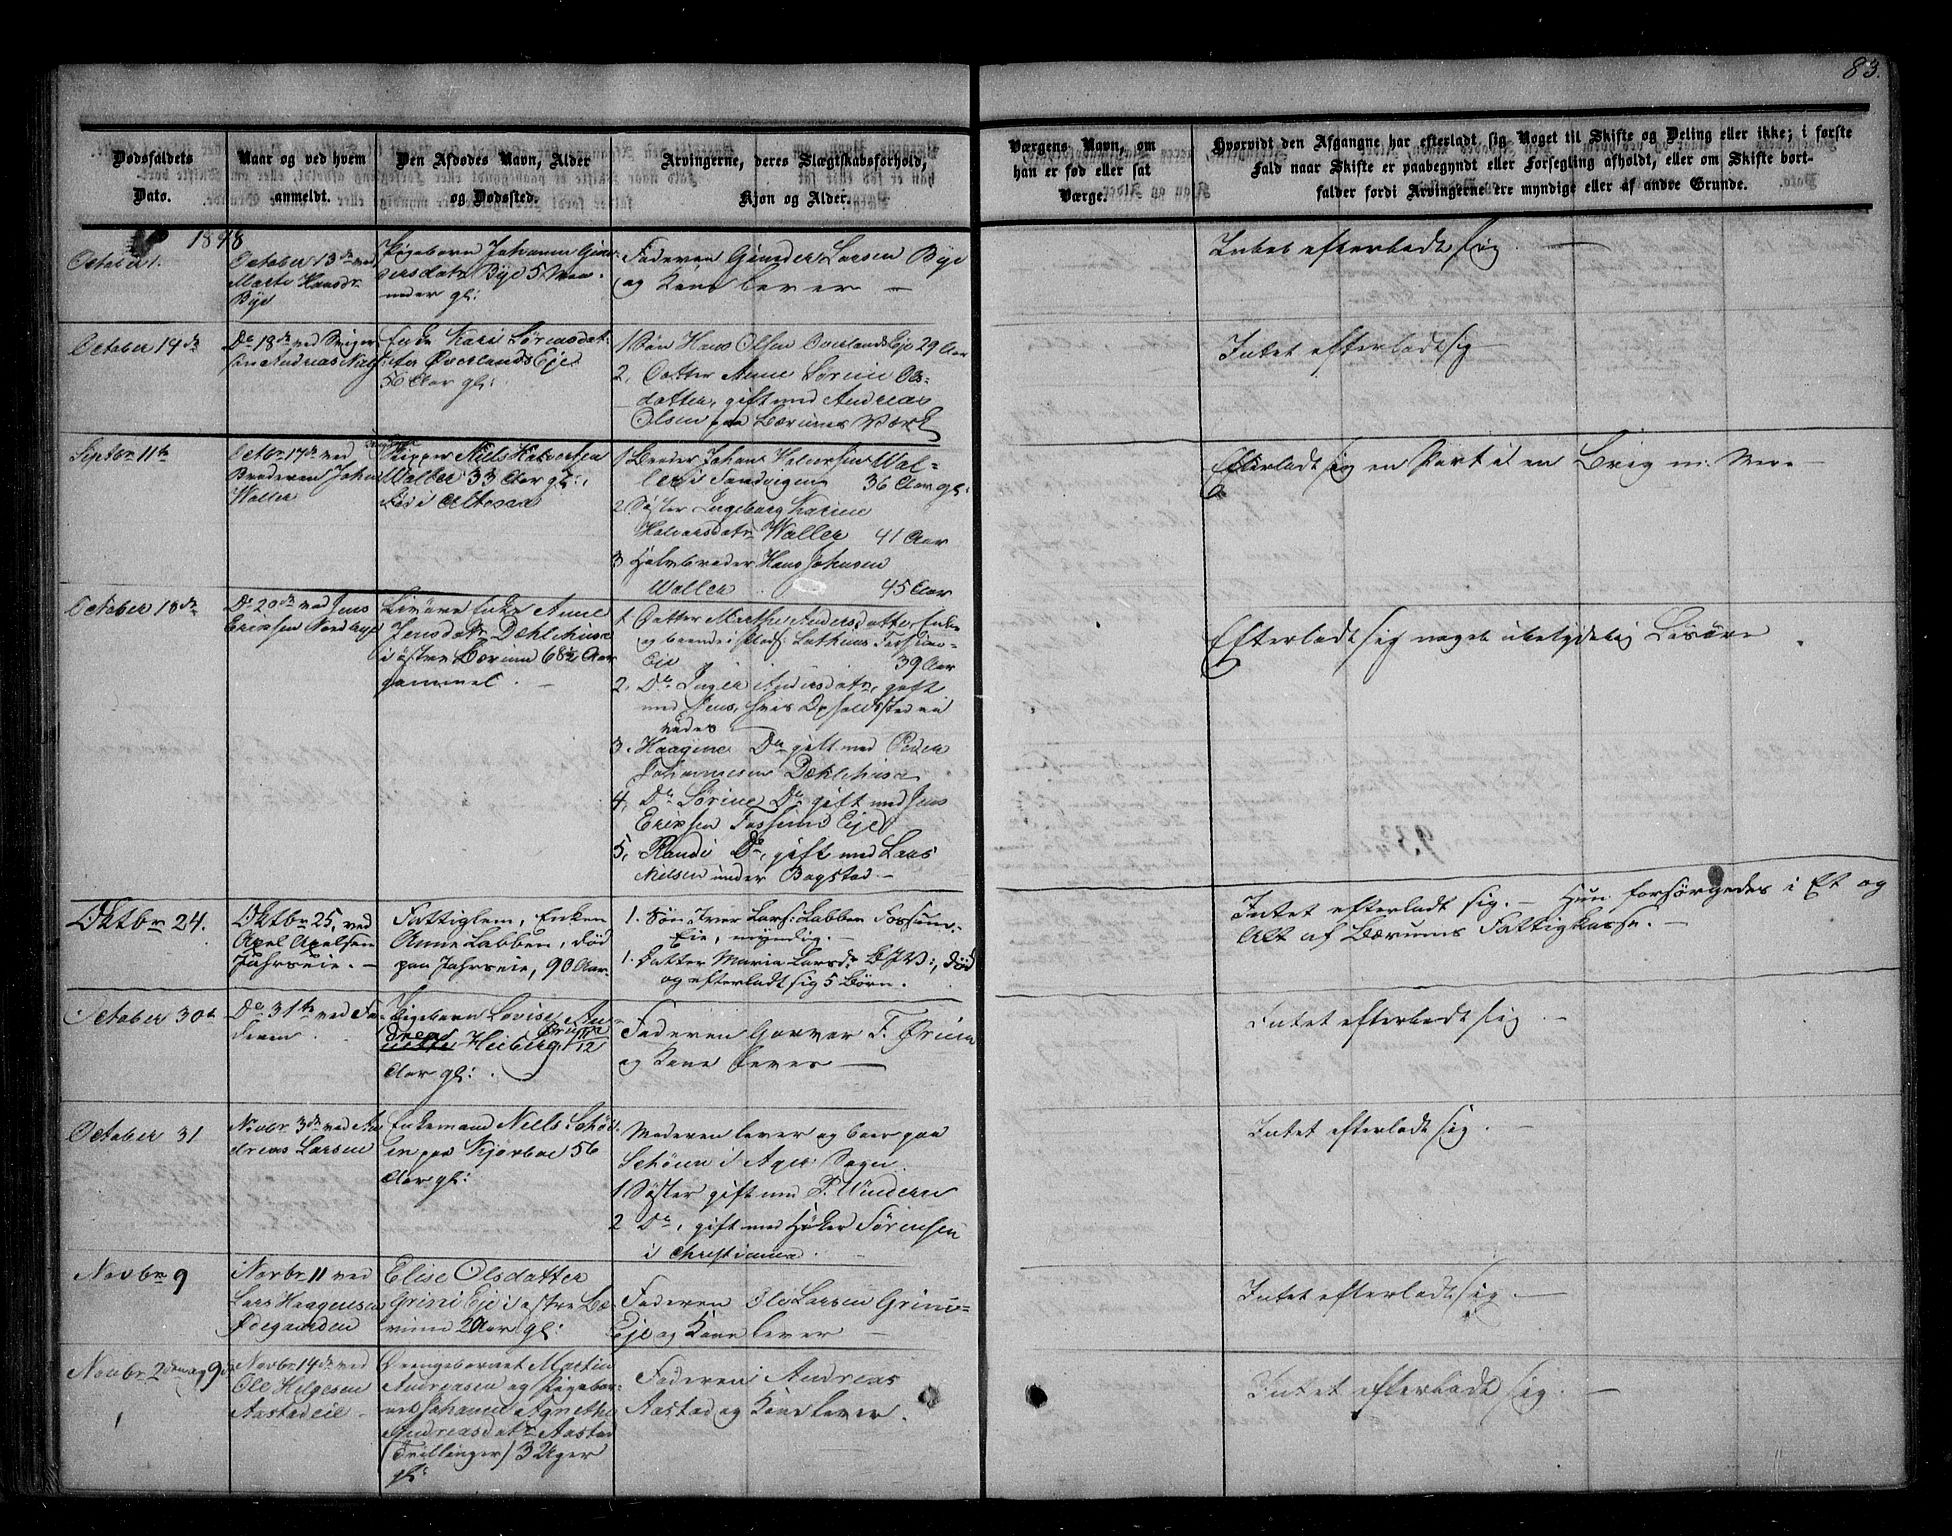 83.
Dødsfaldets
Dato.
Naar og ved hvem
anmeldt.
Den Afdødes Navn, Alder
og Dødssted.
Arvingerne, deres Slægtskabsforhold,
Kjøn og Alder.
Værgens Navn, om
han er fød eller sat
Værge.
Hvorvidt den Afgangne har efterladt sig Noget til Skifte og Deling eller ikke; i første
Fald naar Skifte er paabegyndt eller Forsegling afholdt, eller om Skifte bort-
falder fordi Arvingerne ere myndige eller af andre Grunde.
October 1.
October 13de ved
Marte Hansdr
Bye
Pigebarn Johanne Gun-
dersdatr Bye 5 Maa-
neder gl:
Faderen Gunder Larsen Bye
og Kone lever —
Intet efterladt sig. —
October 14de
Do 18de ved Sviger
søn Andreas
Enke Kari Sørensdat-
ter Øverlands Eje
56 Aar gl:
1 Søn Hans Olsen Overlands Eje 29 Aar
2. Datter Anne Sørine Ols-
datter, gift med Andreas
Olsen paa Bærums Værk
Intet efterladt sig —
Septbr 11te
Octbr 17de ved
Broderen Johan
Waller
Skipper Niels Halvorsen
Waller 33 Aar gl:,
Død i
1 Broder Johan Halvorsen Wal-
ler i Sandvigen 36 Aar gl:
2 Søster Ingeborg Karine
Halvorsdatr Waller 41 Aar
3 Halvbroder Hans Johnsen
Waller 45 Aar
Efterladt sig en Part i en Brig m: Mere —
October 18de
Do 20de ved Jens
Eriksen Nordbye
Enke Anne
Jensdatr Dæhlehusa
i østre Bærum 68½ Aar
gammel. —
1. Datter Marthe Andersdatter Enke
og boende i Lathus Fossum-
Eje 39 Aar
2. Do Inger Andersdatr, gift
med Jens, hvis Opholdssted ei
vides —
3. Haagine Do gift med Peder
Johannesen Dæhlehusa
4. Do Sørine Do gift med Jens
Eriksen Fossums Eje
5. Randi Do, gift med Lars
Nielsen under Bagstad —
Efterladt sig noget ubetydelig Løsøre
Oktbr 24.
Oktbr 25, ved
Axel Axelsen
Jahrseie. —
Fattiglem, Enken
Anne Labben, død
paa Jahrseie, 90 Aar.
1. Søn Iver Lars: Labben Fossum-
Eie, myndig. —
1. Datter Maria Larsdr , død
og efterladt sig 5 Børn.
Intet efterladt sig. — Hun forsørgedes i Et og
Alt af Bærums Fattigkasse. —
October 30te
Do 31te ved Fa-
deren.
Pigebarn Lovise An-
drea Heiberg Øruen 11/12
Aar gl:
Faderen Garver F. Øruen
og Kone lever —
Intet efterladt sig. —
October 31
Novbr 3de ved An
dreas Larsen
Enkemand Niels Schøi-
en paa Kjørboe 56
Aar gl:
Moderen lever og boer paa
Schøien i Ager Sogn.
1 Søster gift med P. Windern
2 Do, gift med Høker Sørensen
i Christiania.
Intet efterladt sig. —
Novbr 9
Novbr 11 ved
Lars Haagensen
Ødegaarden
Elise Olsdatter
Grini Eje i østre Bæ-
rum 2 Aar gl:
Faderen Ole Larsen Grini-
Eje og Kone lever —
Intet efterladt sig. —
Novbr 2den og 9de
Novbr 14de ved
Ole Helgesen
Aastadeie —
Drengebarnet Martin
Andreasen og Pigebar-
net Johanne Agnethe
Andreasdatr Aastad
(Trillinger) 3 Uger
gl:
Faderen Andreas
Aastad og Kone lever.
Intet efterladt sig. —